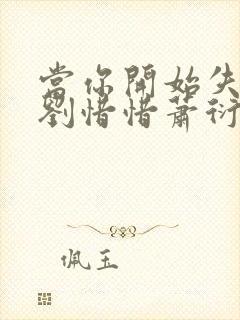 當你開始失
劉惜惜蕭衍
佩玉